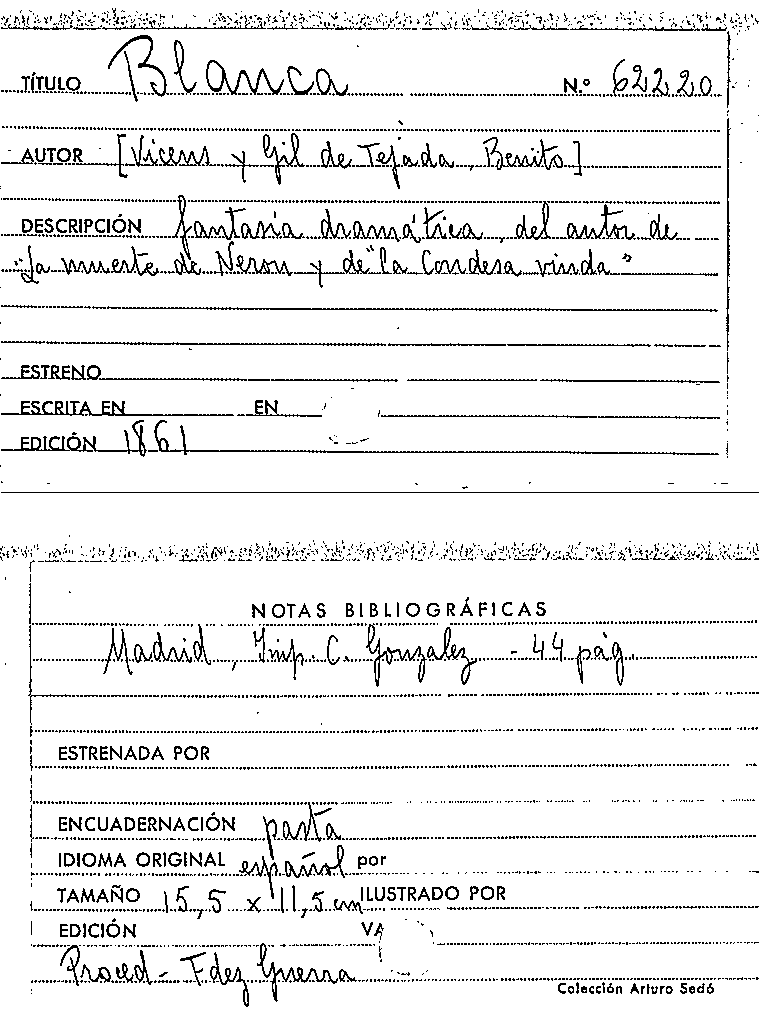 TÍTULO Blanca N.º 62220
AUTOR [Vicens y Gil de Tejada, Benito]
DESCRIPCIÓN fantasía dramática, del autor de
"La muerte de Neron y de "la Condesa viuda"
ESTRENO
ESCRITA EN EN
EDICIÓN 1861
NOTAS BIBLIOGRÁFICAS
Madrid, Imp. C. Gonzalez - 44 pág.
ESTRENADA POR
ENCUADERNACIÓN pasta
IDIOMA ORIGINAL español por
TAMAÑO 15,5 x 11,5 cm ILUSTRADO POR
EDICIÓN VA
Proced - Fdez Guerra
Colección Arturo Sedó